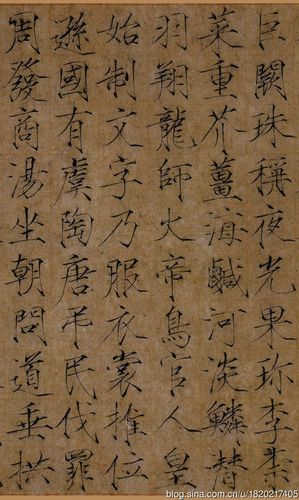 巨闕珠稱夜光果珍李柰
菜重芥薑海鹹河淡鱗潛
羽翔龍師火帝鳥官人皇
始制文字乃服衣裳推位
遜國有虞陶唐弔民伐罪
周發商湯坐朝問道垂拱
blog.sina.com.cn/u/1820217405